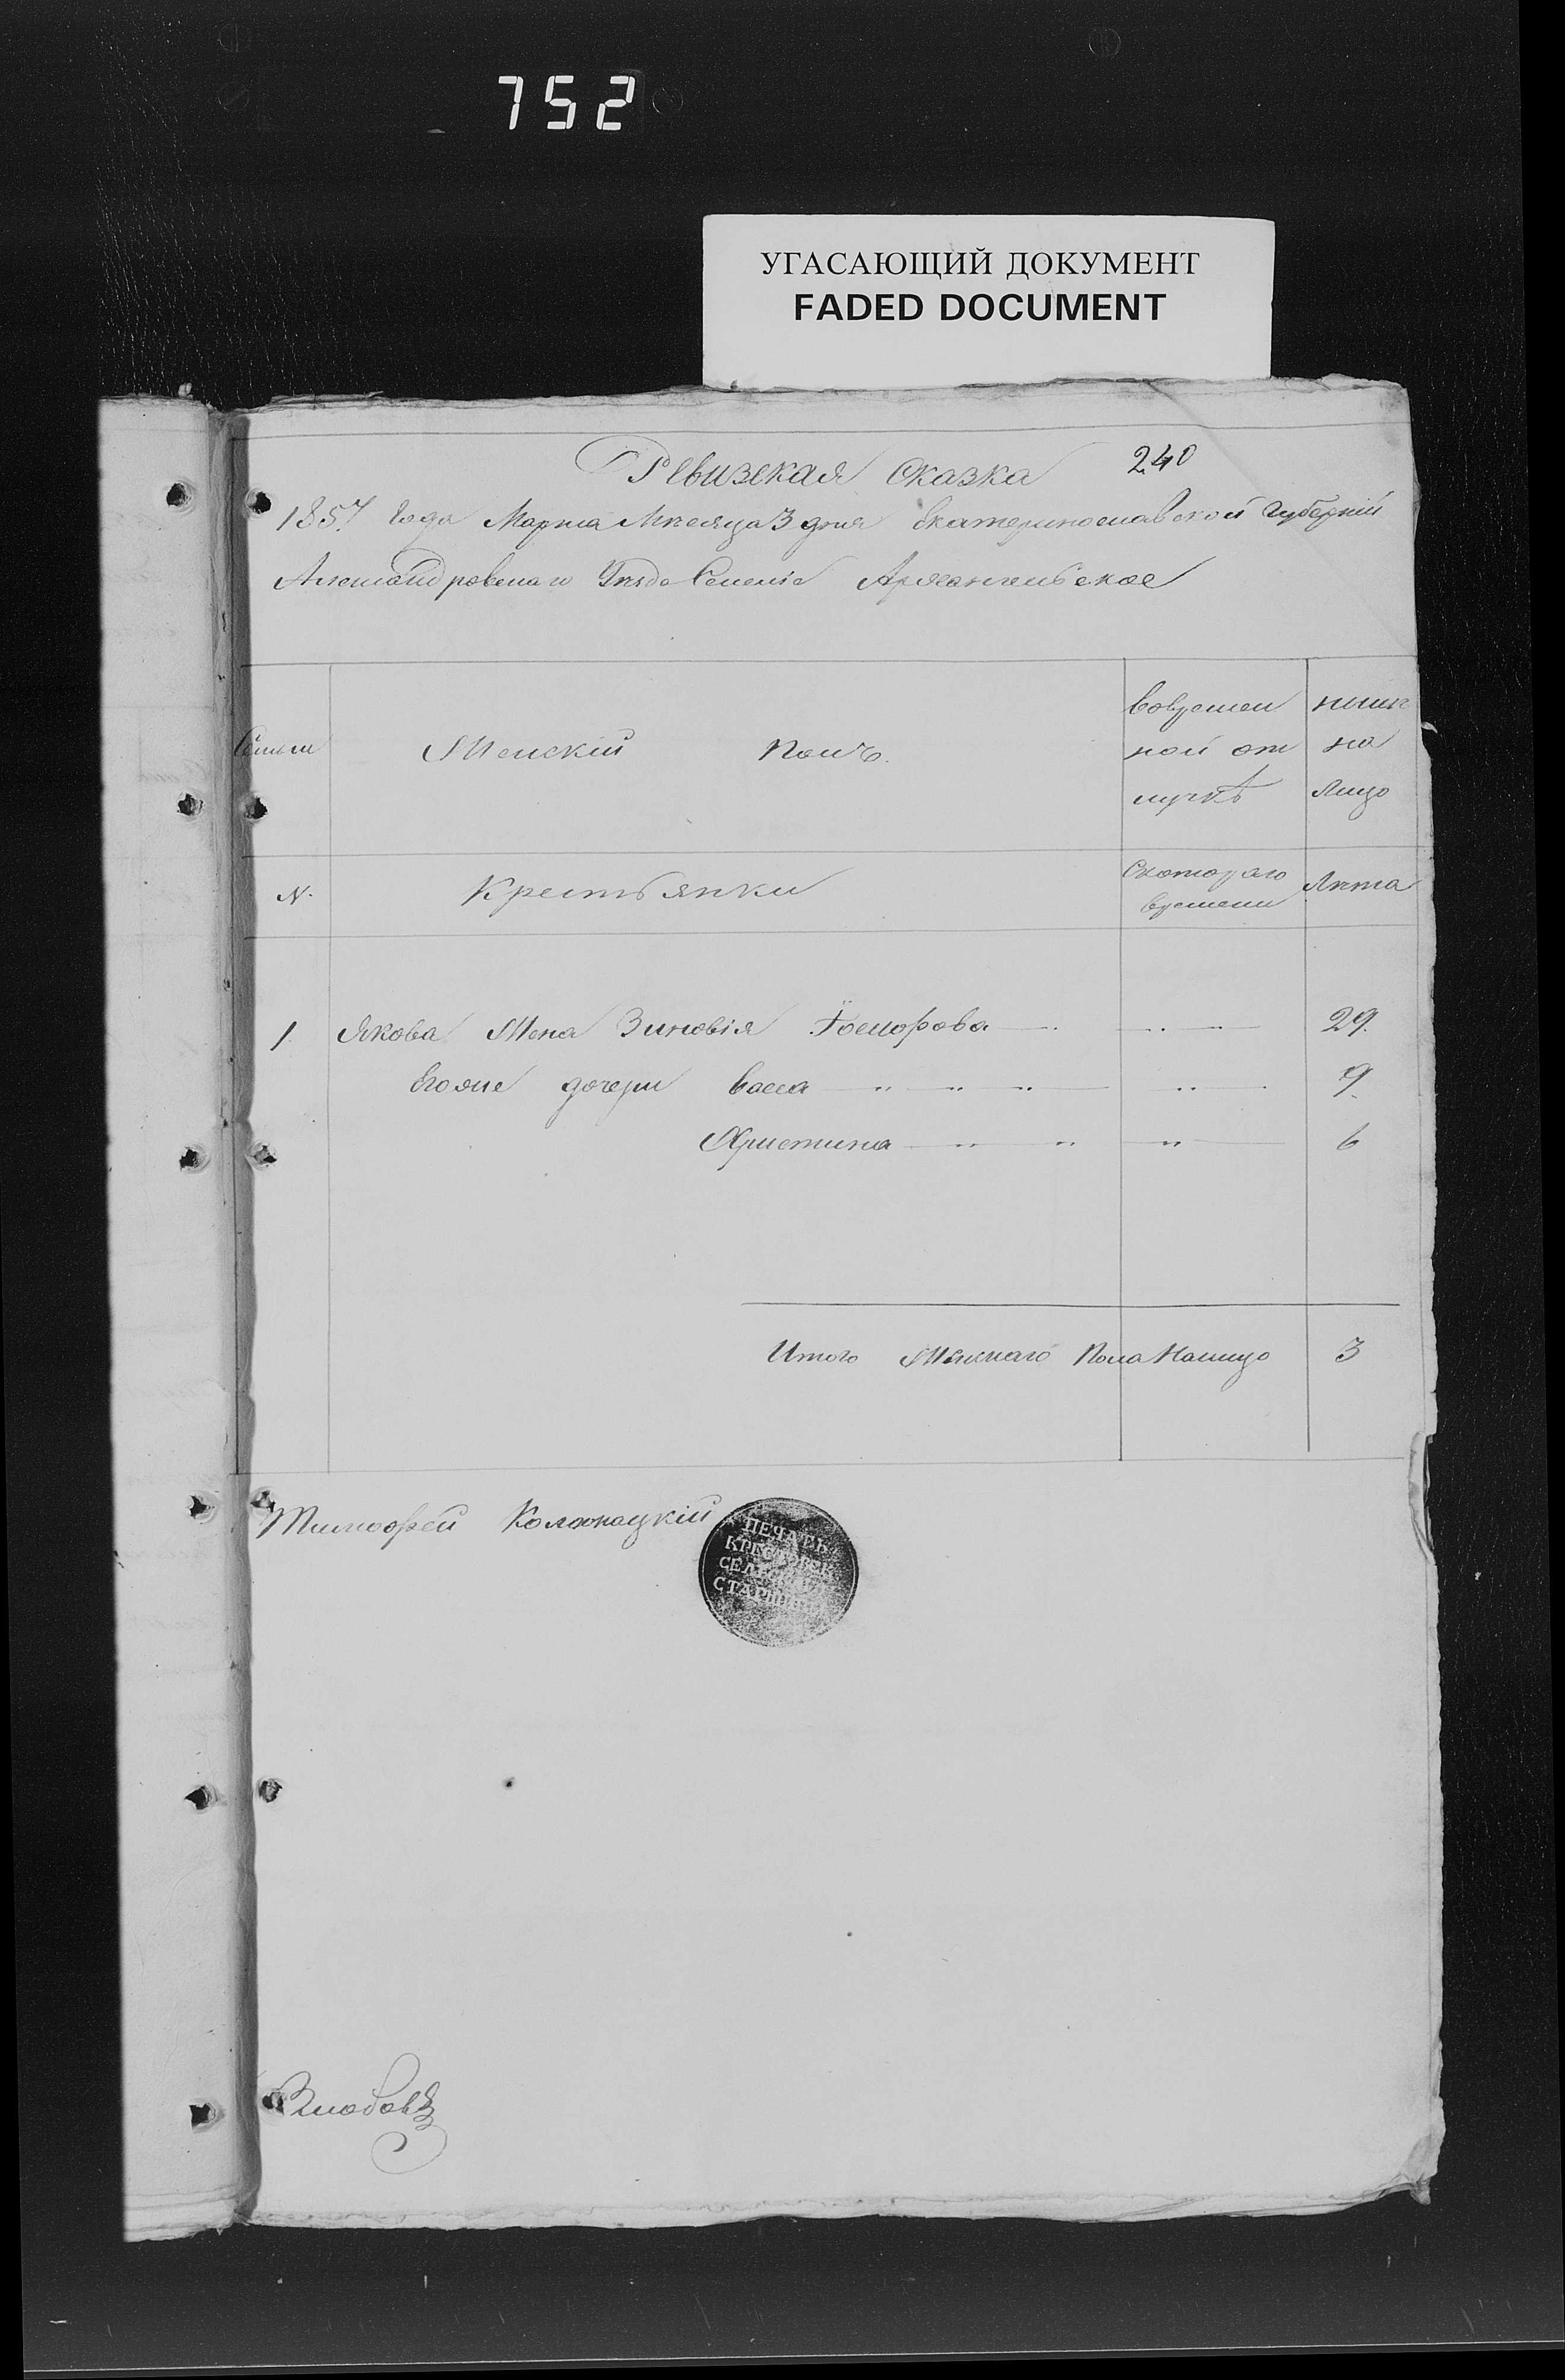 752
УГАСАЮЩИЙ ДОКУМЕНТ
FADED DOCUMENT
240
Ревизская Сказка
1857 Года Марта Месяца 3 дня Екатеринославской Губерніи
Александровскаго Уезда Селеніе Архангельское
Семьи Женскій полъ. вовремен ной от лучкѣ ныне на лицо
N. Крестьянки Скотораго времени Лета
1. Якова Жена Зиновія Феодорова 29.
Егоже дочери Васса 9.
Христина 6
Итого Женскаго Пола Налицо 3
Тимофей
ПЕЧАТЬ
СЕЛЬСКАГО
СТАРШИНЫ